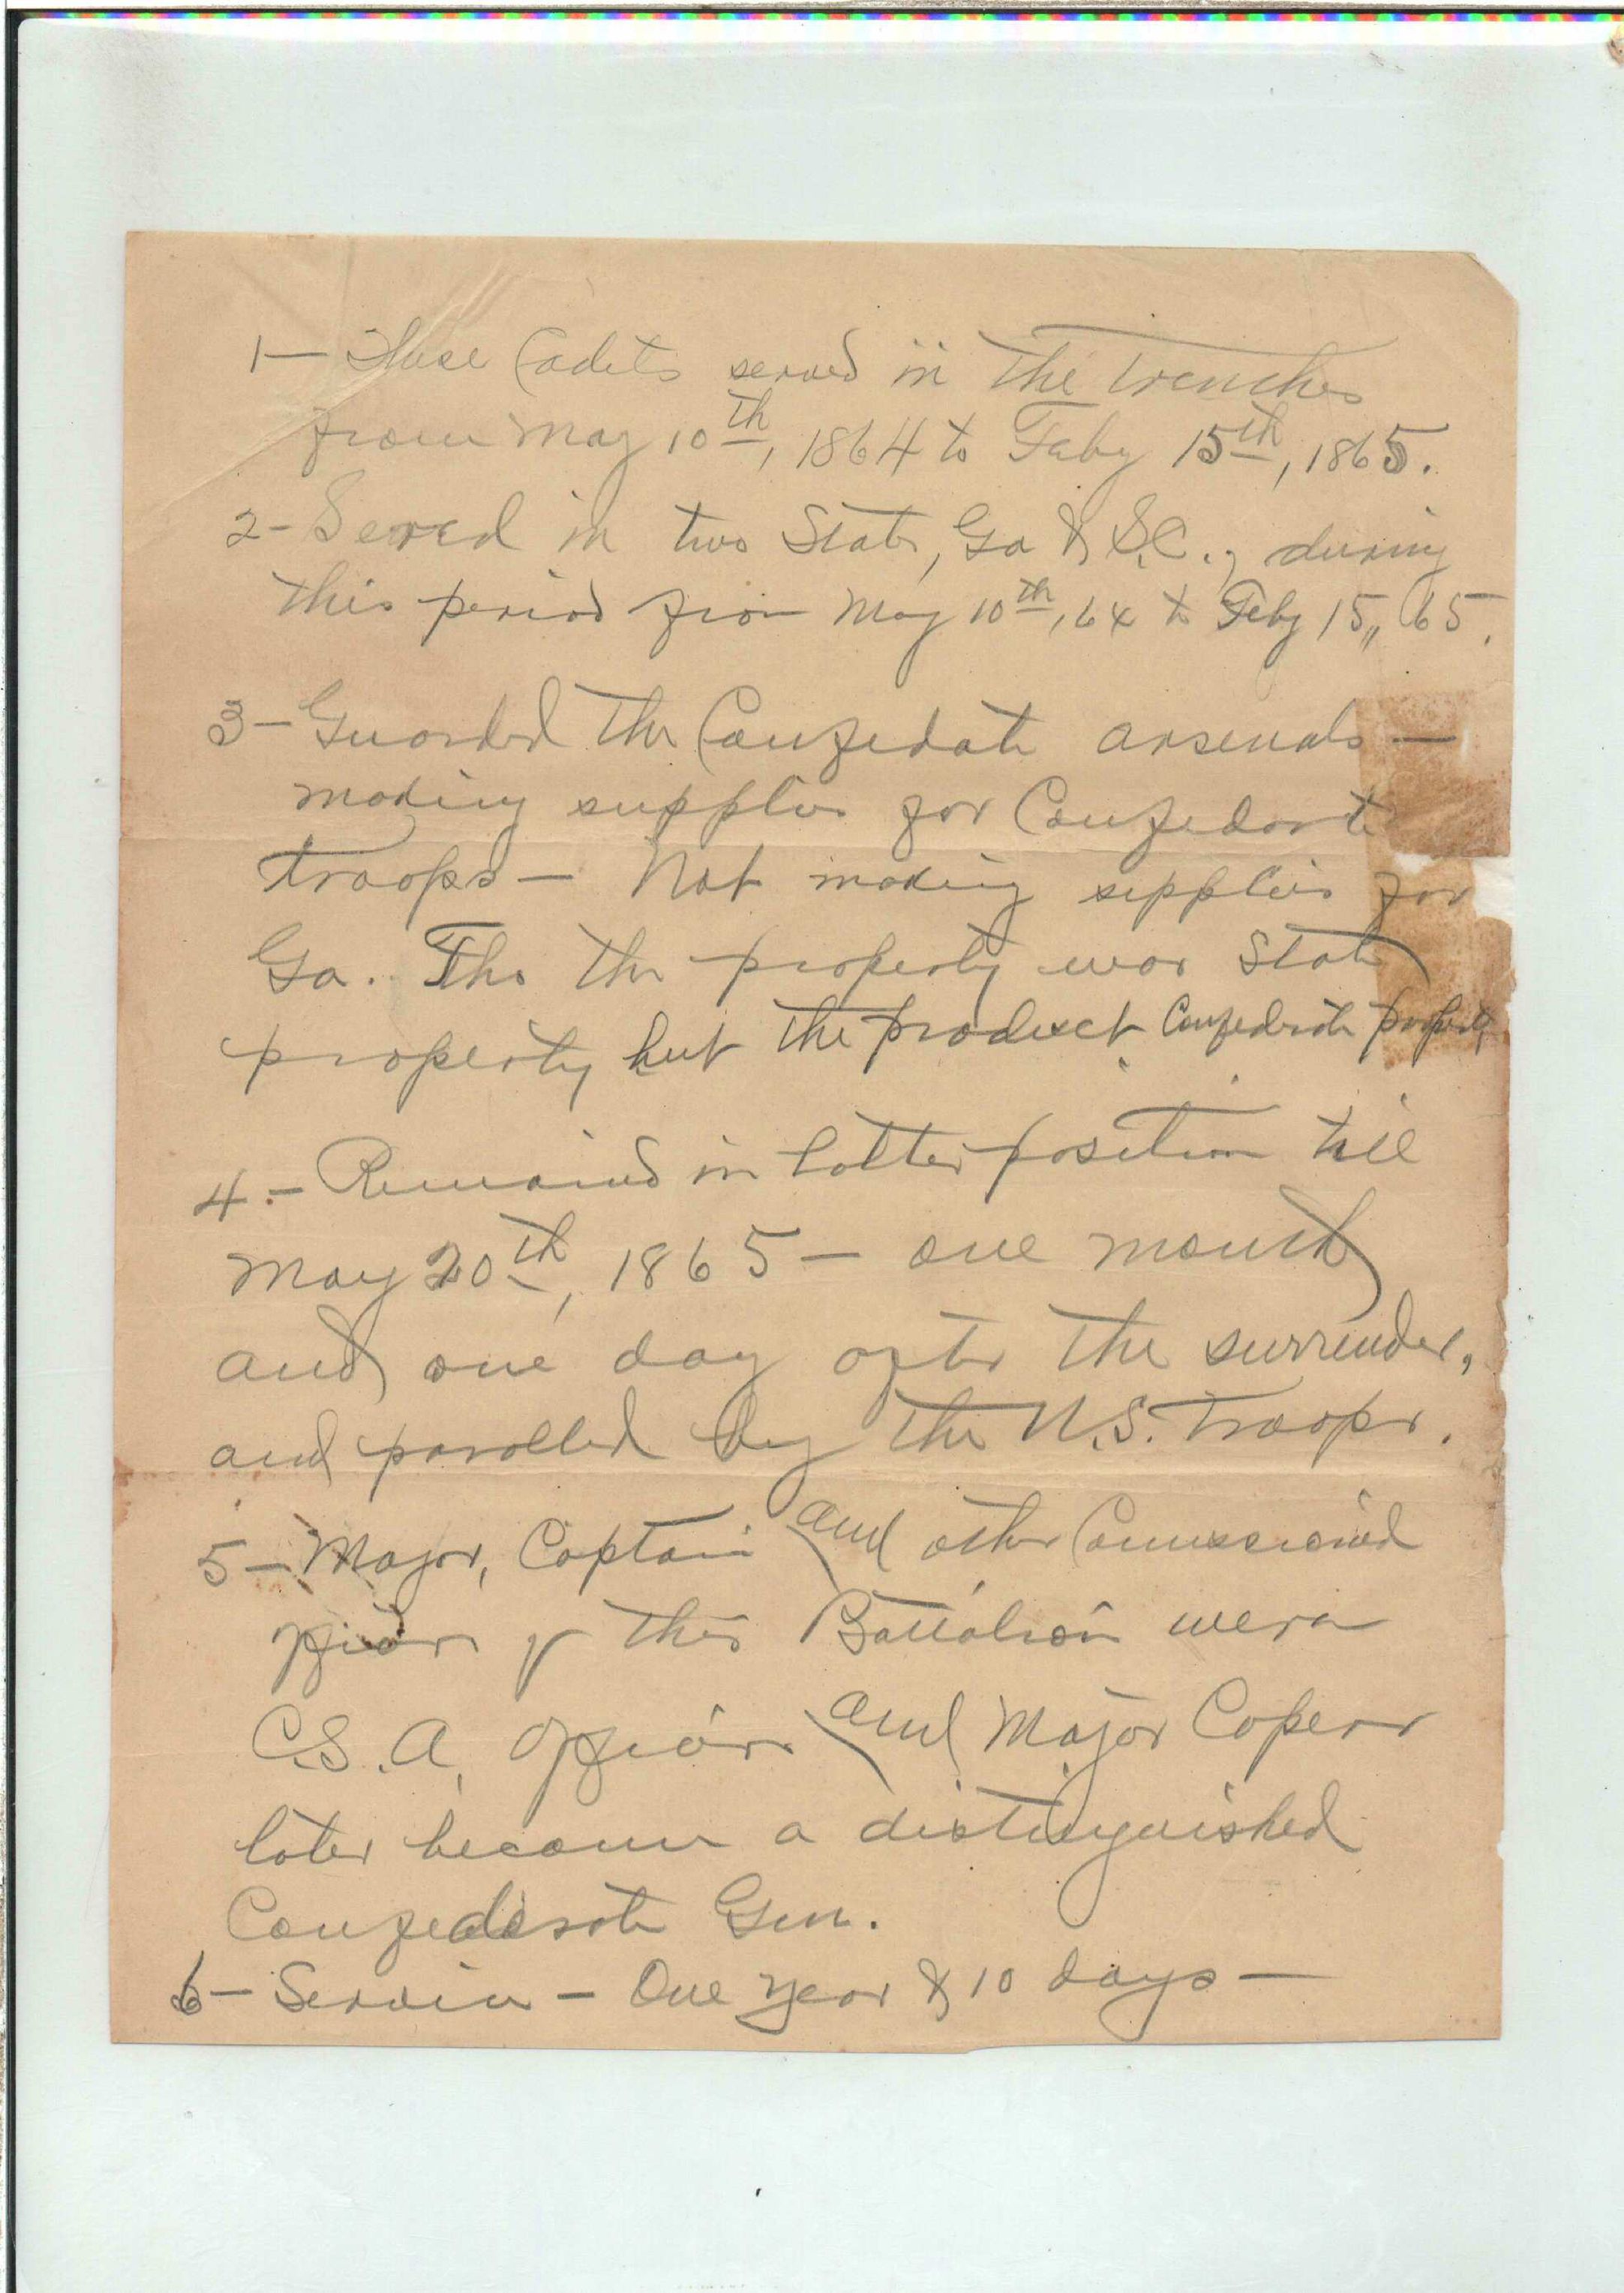 1— These Cadets served in the trenches
from May 10th, 1864 to Feby 15th, 1865.
2- Served in two States, Ga & S.C., during
this period from May 10th, 64 to Feby 15,, 65.
3- Guarded the Confederate arsenals —
making supplies for Confederate
troops — Not making supplies for
Ga. Tho the property was State
property but the product Confederate property
4.- Remained in latter position till
May 20th, 1865 — one month
and one day after the surrender,
and parolled by the U.S. Troops.
5— Major, Captain and other Commissioned
officers of this Battalion were
C.S.A. officers and Major Capers
later became a distinguished
Confederate Gen.
6— Service — One year & 10 days —